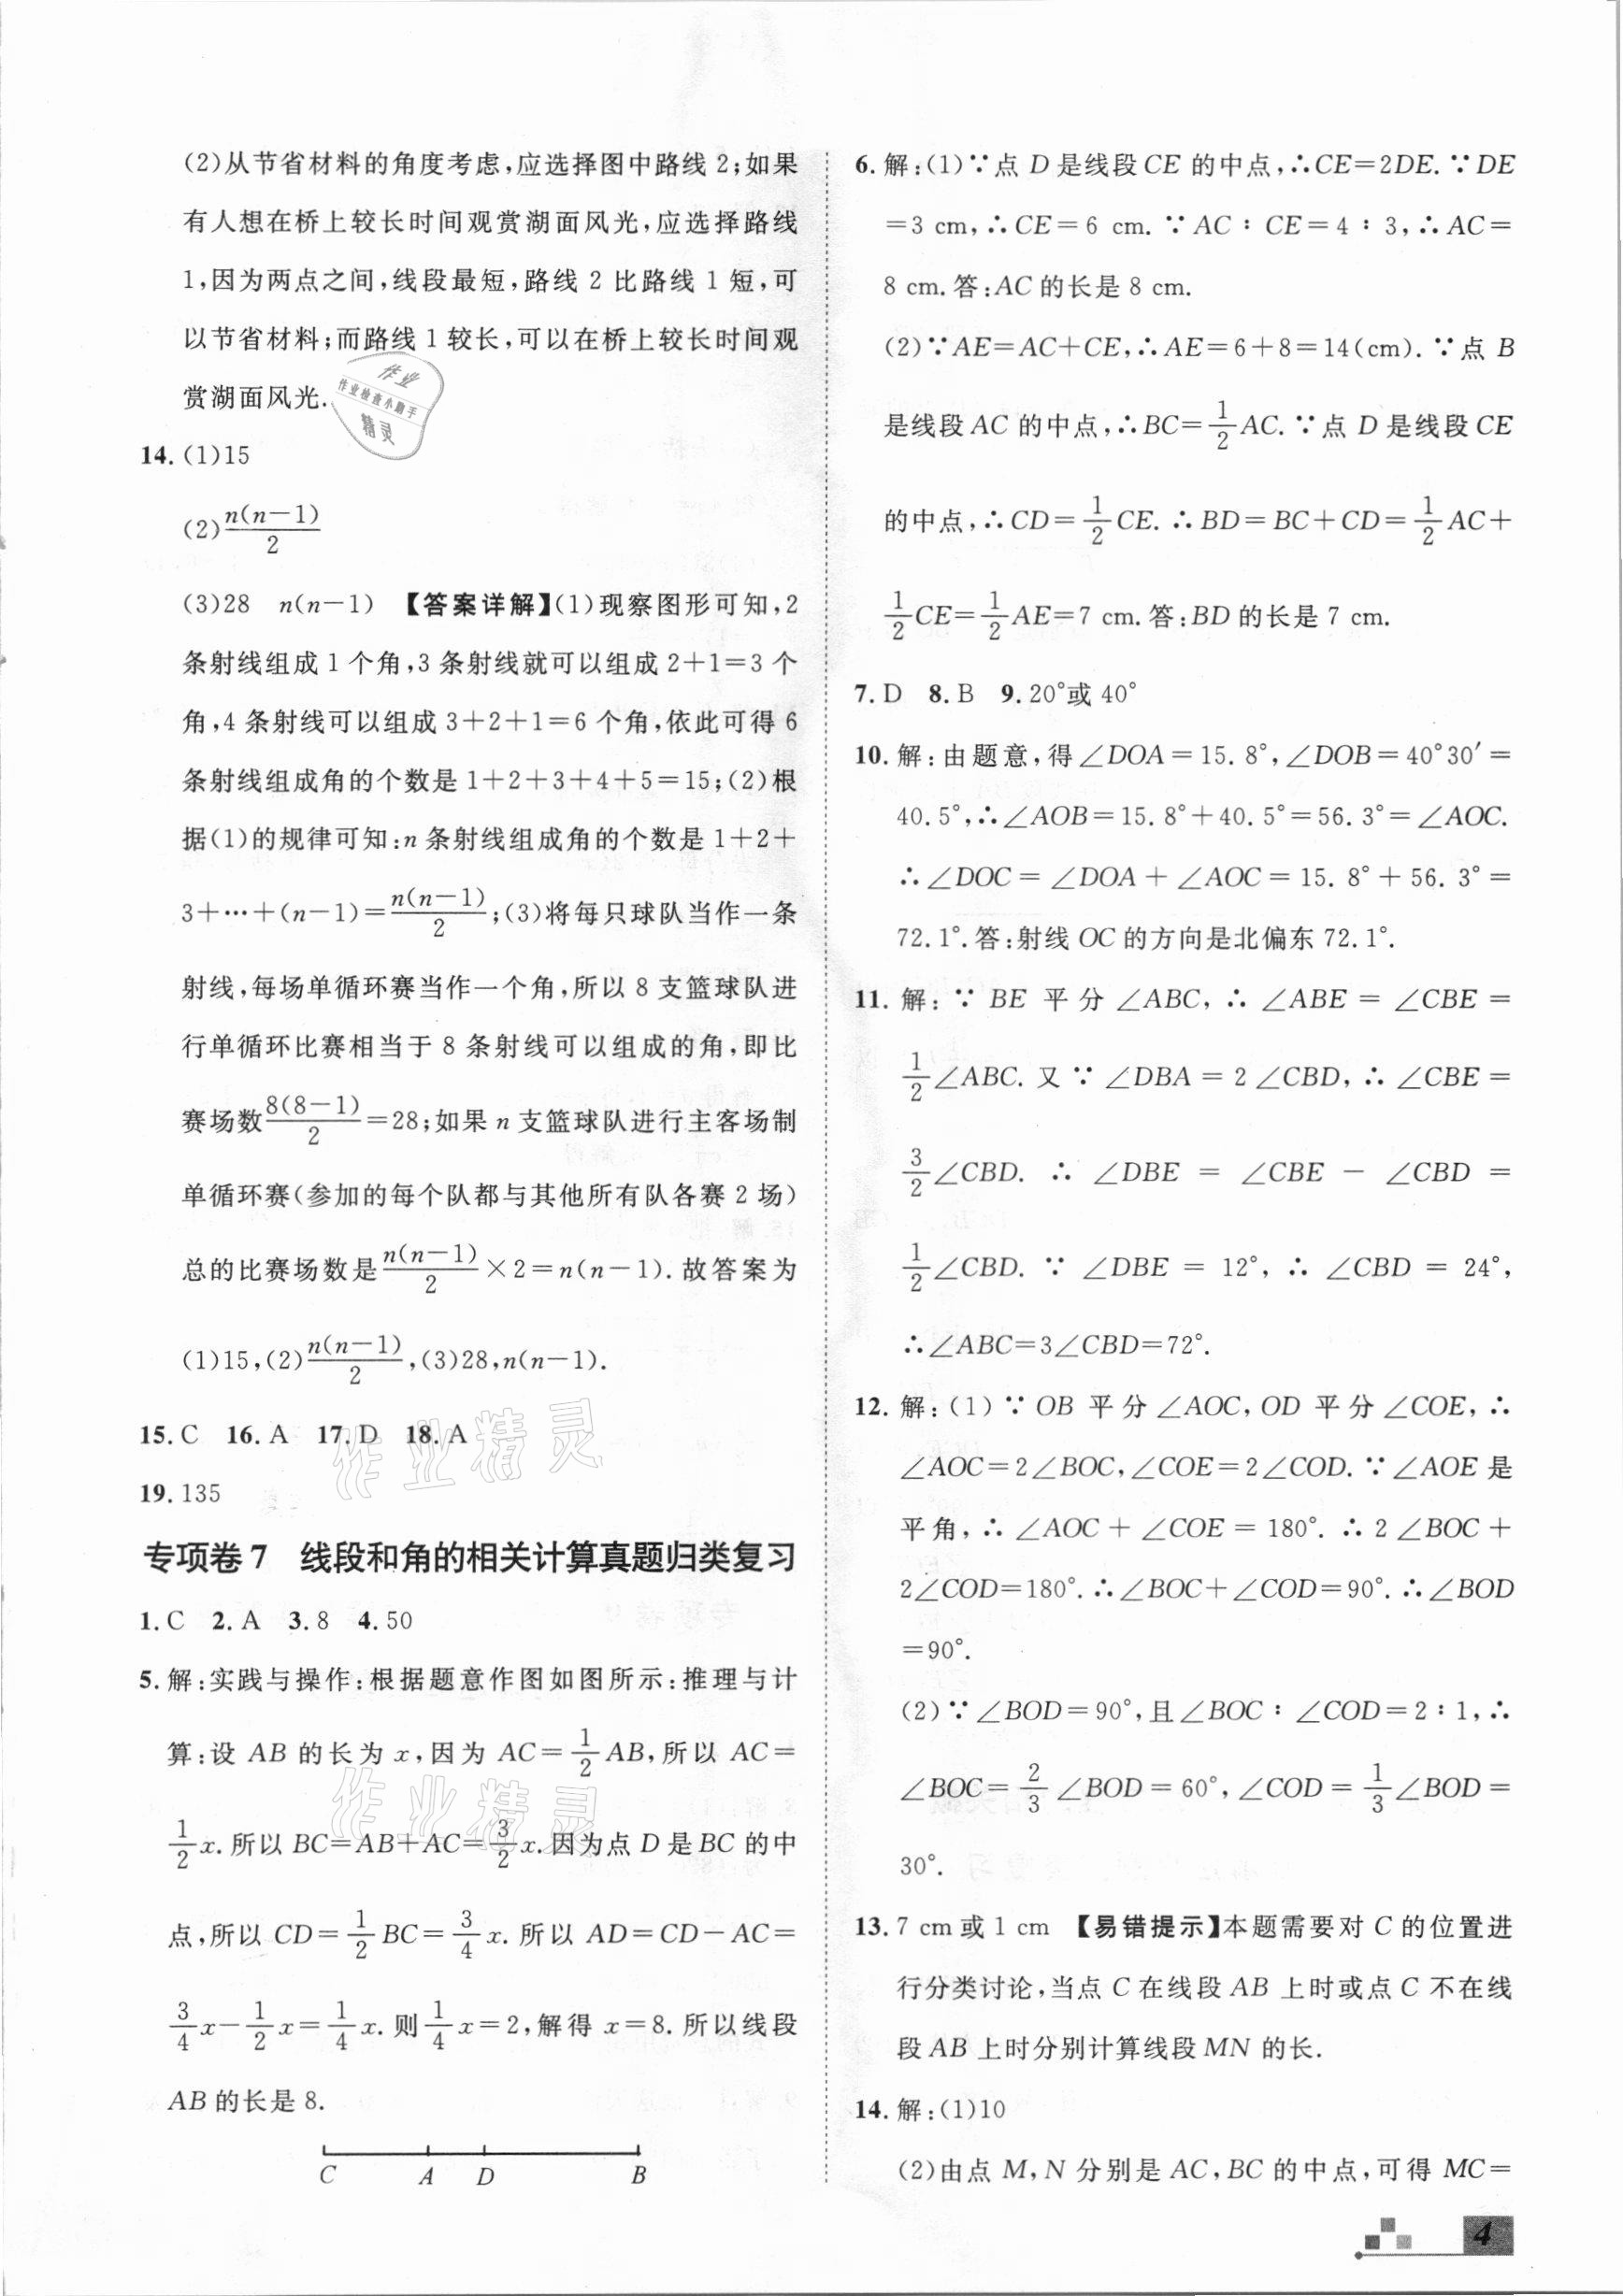 (2)从节省材料的角度考虑,应选择图中路线 2;如果
有人想在桥上较长时间观赏湖面风光,应选择路线
1,因为两点之间,线段最短,路线 2 比路线 1 短,可
以节省材料;而路线 1 较长,可以在桥上较长时间观
赏湖面风光.
14. (1)15
(2)n(n−1)/2
(3)28 n(n−1) 【答案详解】(1)现察图形可知,2
条射线组成 1 个角,3 条射线就可以组成 2+1=3 个
角,4 条射线可以组成 3+2+1=6 个角,依此可得 6
条射线组成角的个数是 1+2+3+4+5=15;(2)根
据(1)的规律可知:n 条射线组成角的个数是 1+2+
3+…+(n−1)=n(n−1)/2;(3)将每只球队当作一条
射线,每场单循环赛当作一个角,所以 8 支篮球队进
行单循环比赛相当于 8 条射线可以组成的角,即比
赛场数8(8−1)/2=28;如果 n 支篮球队进行主客场制
单循环赛(参加的每个队都与其他所有队各赛 2 场)
总的比赛场数是n(n−1)/2×2=n(n−1).故答案为
(1)15,(2)n(n−1)/2,(3)28,n(n−1).
15. C 16. A 17. D 18. A
19. 135
专项卷 7 线段和角的相关计算真题归类复习
1. C 2. A 3. 8 4. 50
5. 解:实践与操作:根据题意作图如图所示:推理与计
算:设 AB 的长为 x,因为 AC=1/2AB,所以 AC=
1/2x.所以 BC=AB+AC=3/2x.因为点 D 是 BC 的中
点,所以 CD=1/2BC=3/4x.所以 AD=CD−AC=
3/4x−1/2x=1/4x.则1/4x=2,解得 x=8.所以线段
AB 的长是 8.
C A D B
6. 解:(1)∵点 D 是线段 CE 的中点,∴CE=2DE.∵DE
=3 cm,∴CE=6 cm.∵AC∶CE=4∶3,∴AC=
8 cm.答:AC 的长是 8 cm.
(2)∵AE=AC+CE,∴AE=6+8=14(cm).∵点 B
是线段 AC 的中点,∴BC=1/2AC.∵点 D 是线段 CE
的中点,∴CD=1/2CE.∴BD=BC+CD=1/2AC+
1/2CE=1/2AE=7 cm.答:BD 的长是 7 cm.
7. D 8. B 9. 20°或 40°
10. 解:由题意,得∠DOA=15.8°,∠DOB=40°30′=
40.5°,∴∠AOB=15.8°+40.5°=56.3°=∠AOC.
∴∠DOC=∠DOA+∠AOC=15.8°+56.3°=
72.1°.答:射线 OC 的方向是北偏东 72.1°.
11. 解:∵BE 平分∠ABC,∴∠ABE=∠CBE=
1/2∠ABC.又∵∠DBA=2∠CBD,∴∠CBE=
3/2∠CBD.∴∠DBE=∠CBE−∠CBD=
1/2∠CBD.∵∠DBE=12°,∴∠CBD=24°,
∴∠ABC=3∠CBD=72°.
12. 解:(1)∵OB 平分∠AOC,OD 平分∠COE,∴
∠AOC=2∠BOC,∠COE=2∠COD.∵∠AOE 是
平角,∴∠AOC+∠COE=180°.∴2∠BOC+
2∠COD=180°.∴∠BOC+∠COD=90°.∴∠BOD
=90°.
(2)∵∠BOD=90°,且∠BOC∶∠COD=2∶1,∴
∠BOC=2/3∠BOD=60°,∠COD=1/3∠BOD=
30°.
13. 7 cm 或 1 cm 【易错提示】本题需要对 C 的位置进
行分类讨论,当点 C 在线段 AB 上时或点 C 不在线
段 AB 上时分别计算线段 MN 的长.
14. 解:(1)10
(2)由点 M,N 分别是 AC,BC 的中点,可得 MC=
4
作业
作业检查小助手
精灵
作业精灵
作业精灵